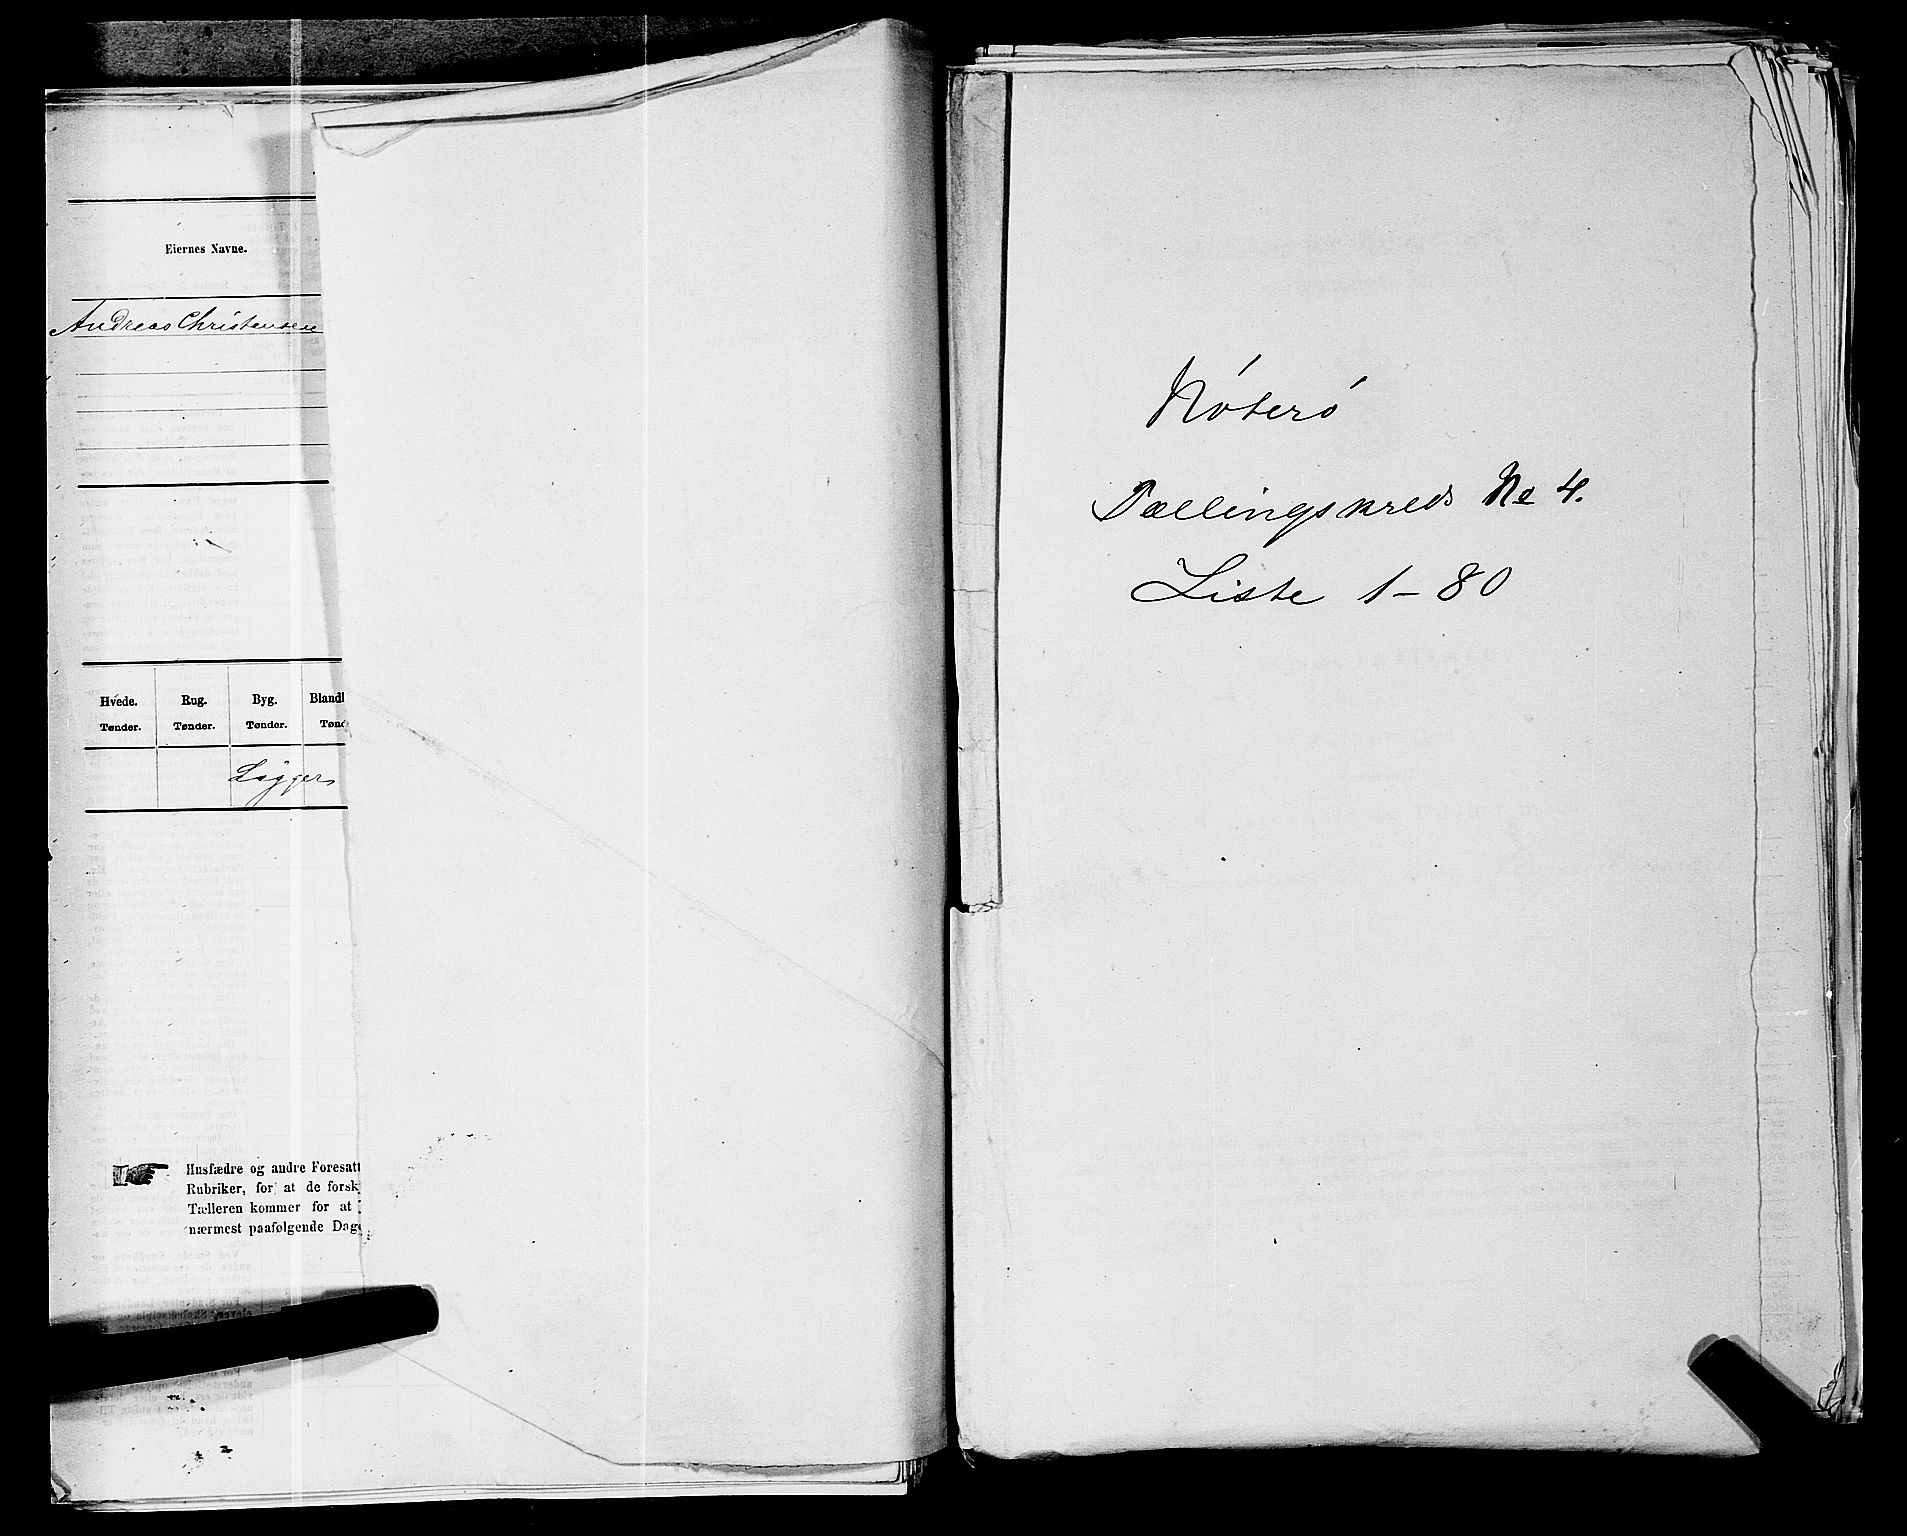 Eiernes Navne.
Andreas Christensen
Hvede.
Tønder.
Rug.
Tønder.
Byg.
Tønder.
Blandl
Tønd
Ligger
Husfædre og andre Foresatt
Rubriker, for at de forsk
Tælleren kommer for at
nærmest paafølgende Dage
Nóteró
Tællingskreds No 4.
Liste 1-80